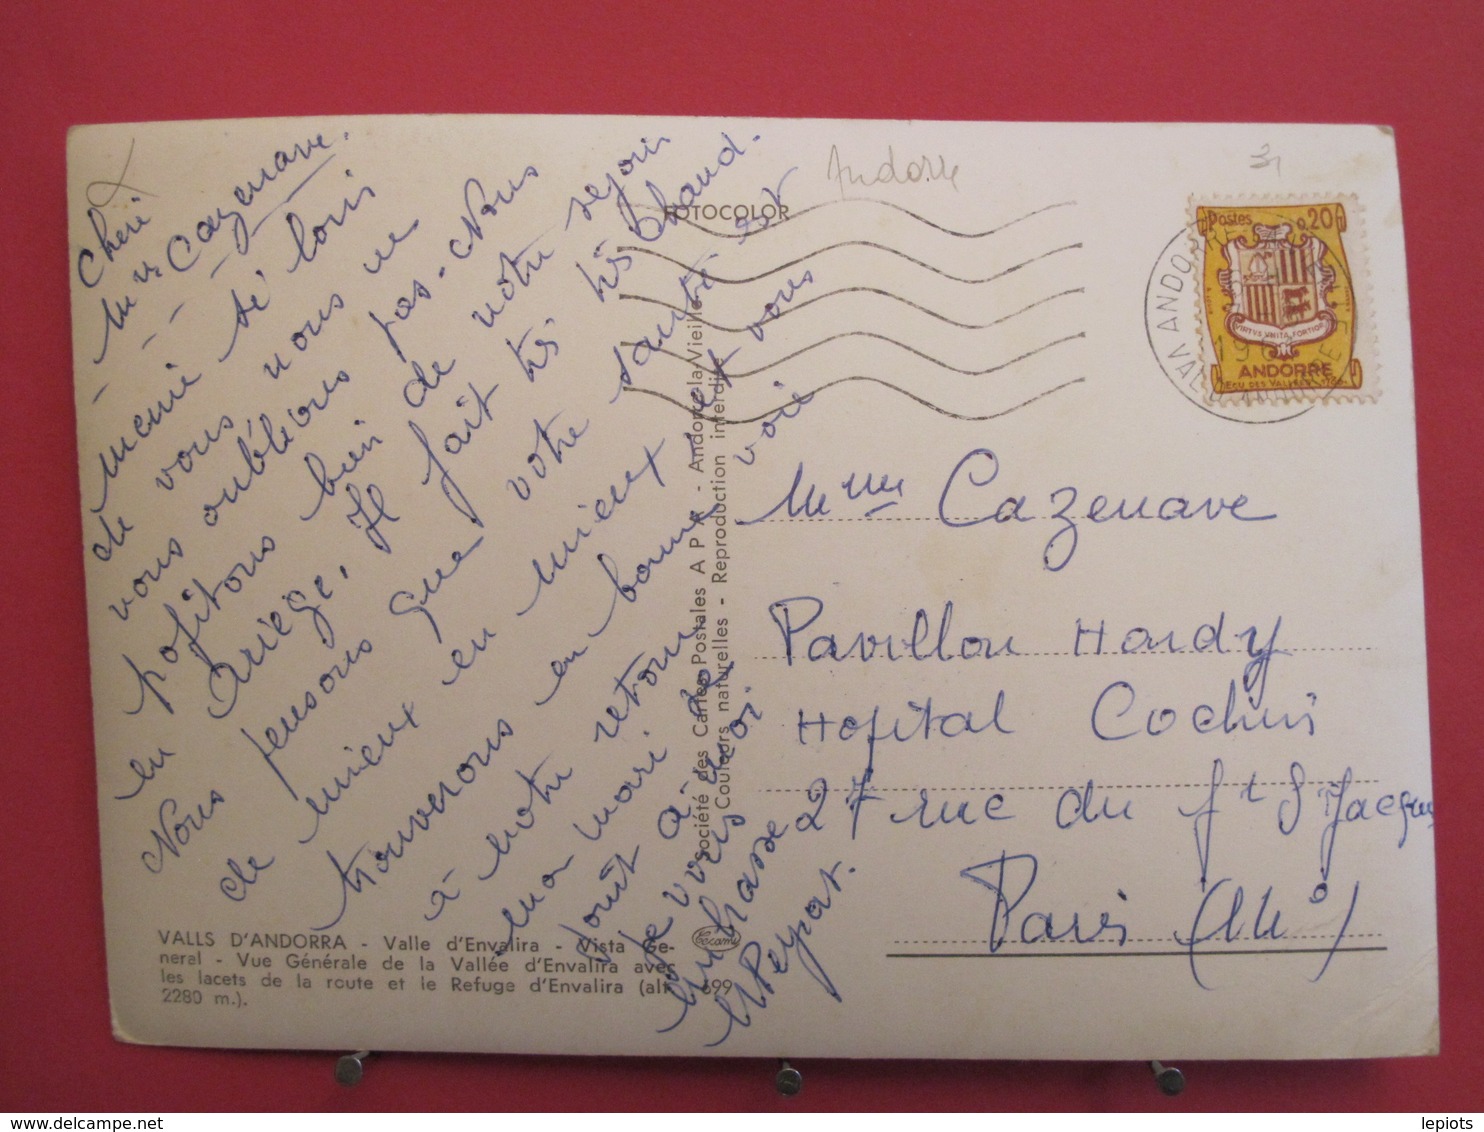 Chère
Mme Cazenave.
même de loin
de vous nous ne
vous oublions pas - Nous
profitons bien de notre séjour
en Ariège. Il fait très très chaud.
Nous pensons que votre santé est
de mieux en mieux et vous
trouverons en bonne voie
à notre retour.
mon mari
août
Je vous
embrasse
Peyrat.
VALLS D'ANDORRA - Valle d'Envalira - Vista Ge-
neral - Vue Générale de la Vallée d'Envalira avec
les lacets de la route et le Refuge d'Envalira (alt. 699
2280 m.).
FOTOCOLOR
Société des Cartes Postales A P A - Andorre-la-Vieille
Couleurs naturelles - Reproduction interdite
Andorre
Postes 0,20
VIRTVS VNITA FORTIOR
ANDORRE
Mme Cazenave
Pavillon Hardy
Hopital Cochin
27 rue du fg St Jacques
Paris
lepiots